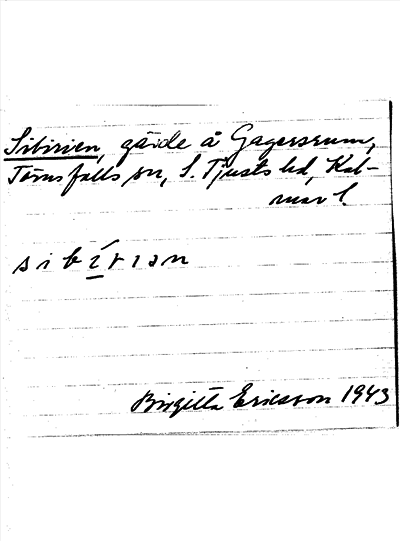 Sibirien, gärde å Gagersrum,
Törnsfalls sn, S. Tjusts hd, Kal-
mar l.
s i b í r i a n
Birgitta Ericsson 1943